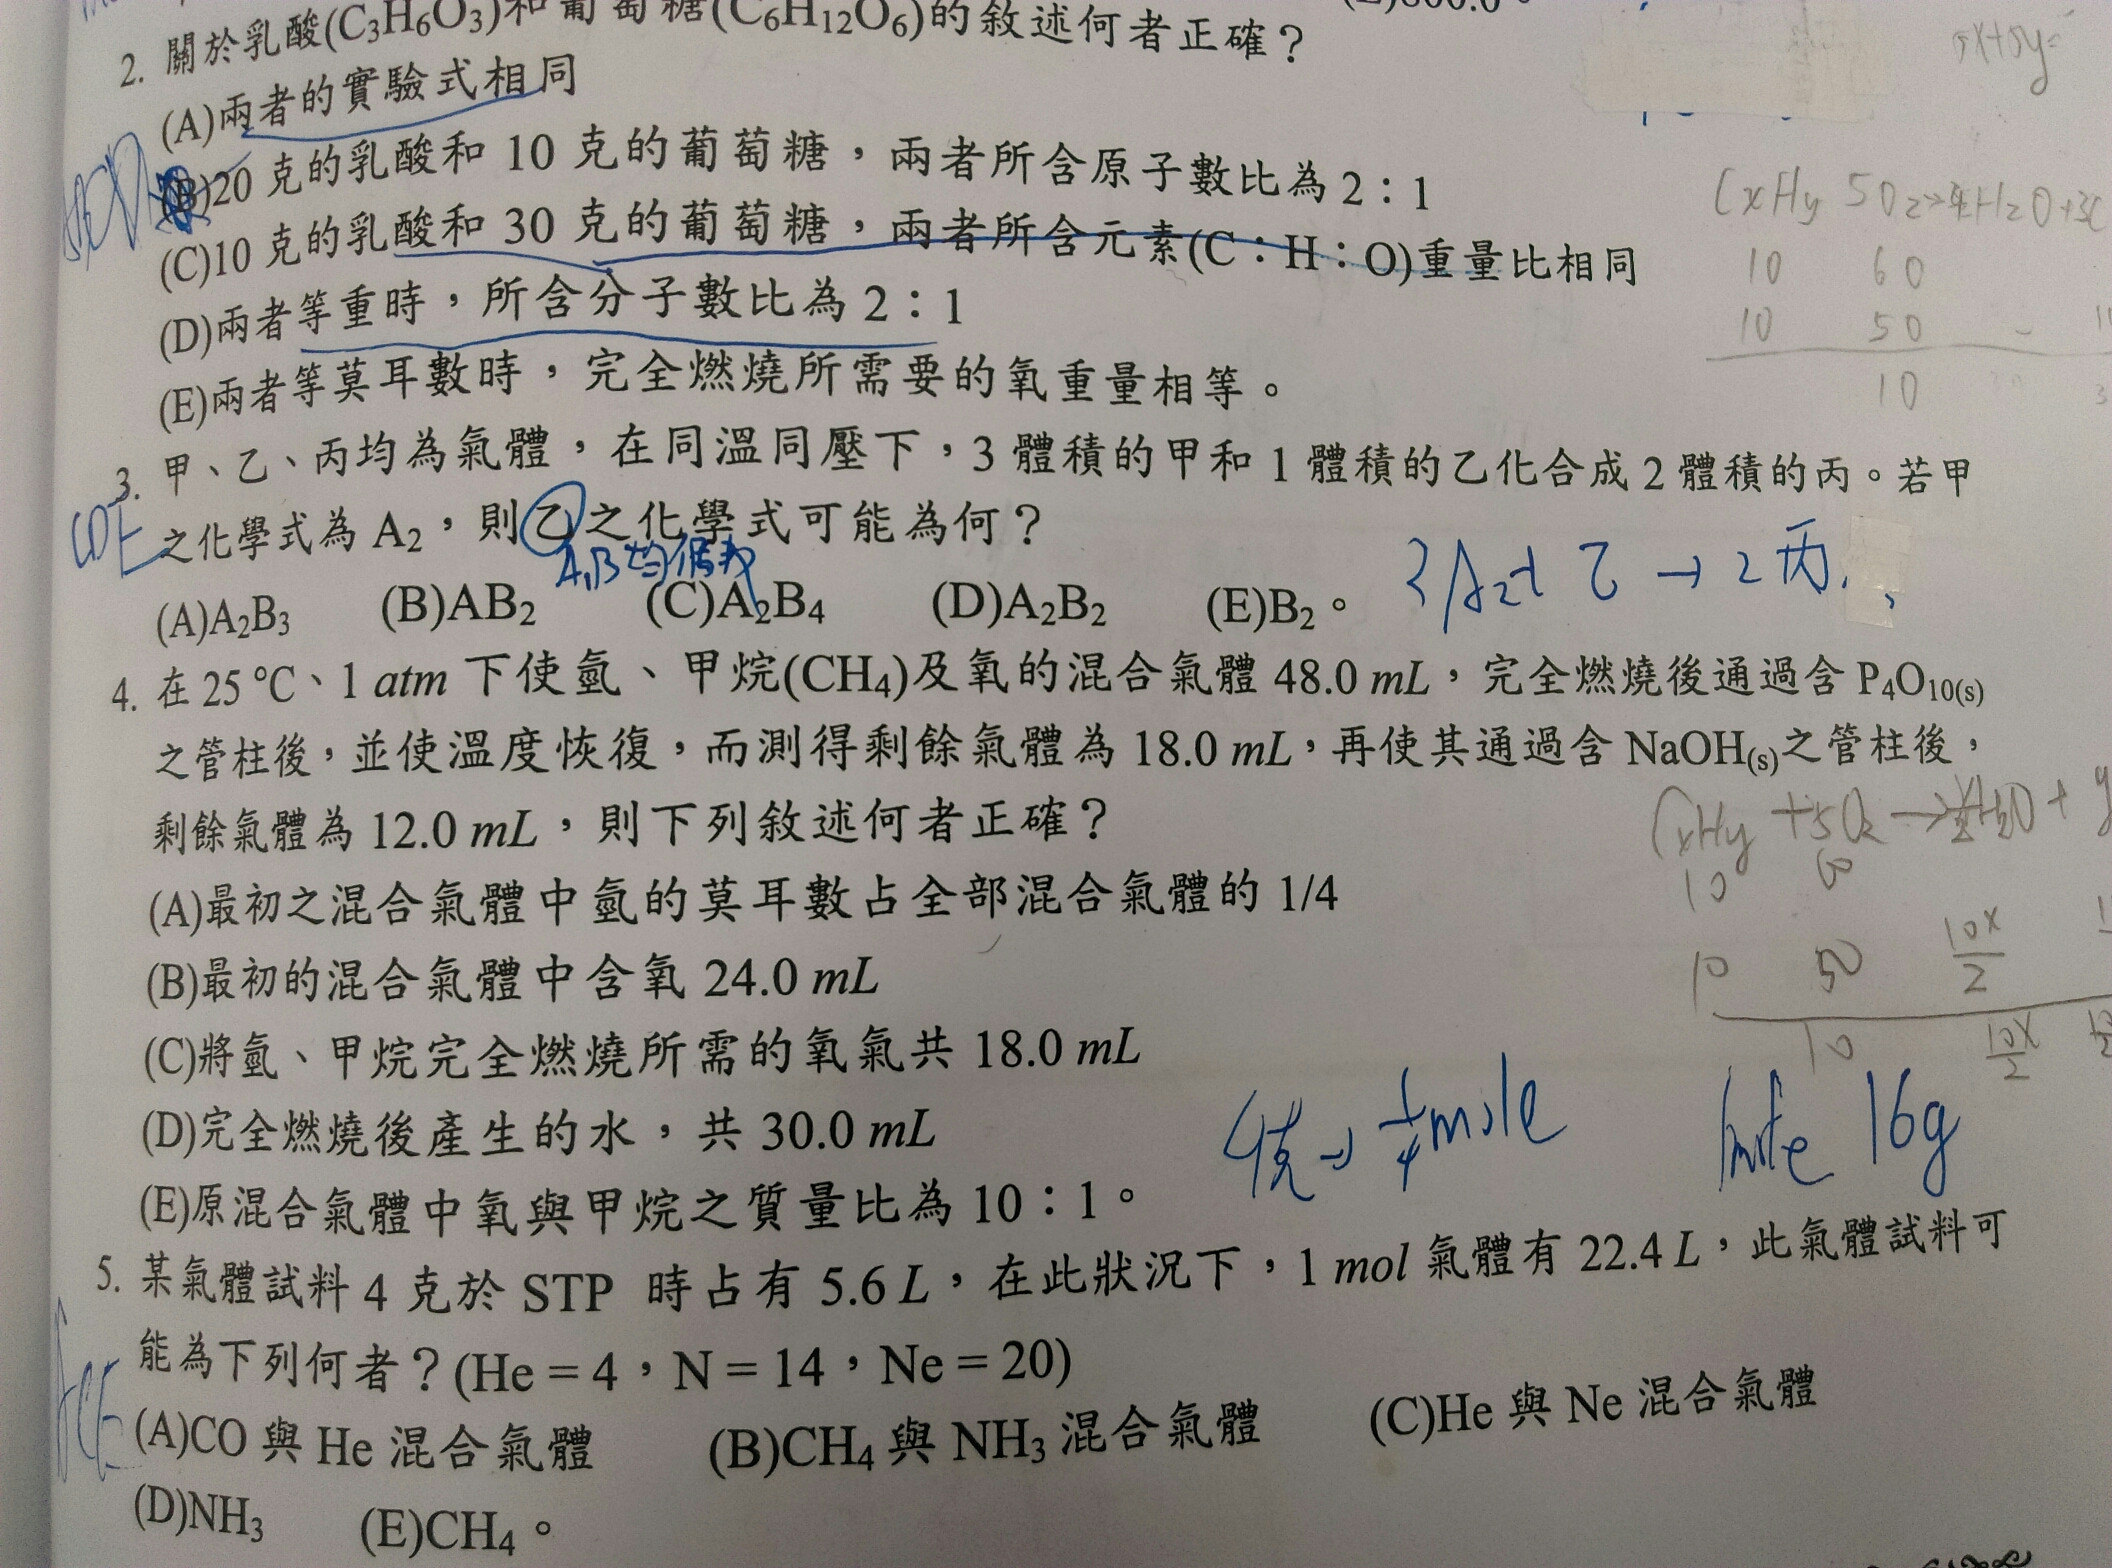 2. 關於乳酸(C3H6O3)和葡萄糖(C6H12O6)的敘述何者正確？
(A)兩者的實驗式相同
(B)20 克的乳酸和 10 克的葡萄糖，兩者所含原子數比為 2：1
(C)10 克的乳酸和 30 克的葡萄糖，兩者所含元素(C：H：O)重量比相同
(D)兩者等重時，所含分子數比為 2：1
(E)兩者等莫耳數時，完全燃燒所需要的氧重量相等。
3. 甲、乙、丙均為氣體，在同溫同壓下，3 體積的甲和 1 體積的乙化合成 2 體積的丙。若甲
CDE
之化學式為 A2，則乙之化學式可能為何？
(A)A2B3 (B)AB2 (C)A2B4 (D)A2B2 (E)B2。
3A2+乙→2丙
4. 在 25 ℃、1 atm 下使氫、甲烷(CH4)及氧的混合氣體 48.0 mL，完全燃燒後通過含 P4O10(s)
之管柱後，並使溫度恢復，而測得剩餘氣體為 18.0 mL，再使其通過含 NaOH(s)之管柱後，
剩餘氣體為 12.0 mL，則下列敘述何者正確？
(A)最初之混合氣體中氫的莫耳數占全部混合氣體的 1/4
(B)最初的混合氣體中含氧 24.0 mL
(C)將氫、甲烷完全燃燒所需的氧氣共 18.0 mL
(D)完全燃燒後產生的水，共 30.0 mL
(E)原混合氣體中氧與甲烷之質量比為 10：1。
4克→1/4mole
1mole 16g
5. 某氣體試料 4 克於 STP 時占有 5.6 L，在此狀況下，1 mol 氣體有 22.4 L，此氣體試料可
能為下列何者？(He = 4，N = 14，Ne = 20)
ACE
(A)CO 與 He 混合氣體 (B)CH4 與 NH3 混合氣體 (C)He 與 Ne 混合氣體
(D)NH3 (E)CH4。
10 60
10 50
10
10 50 10x/2
10 10x/2